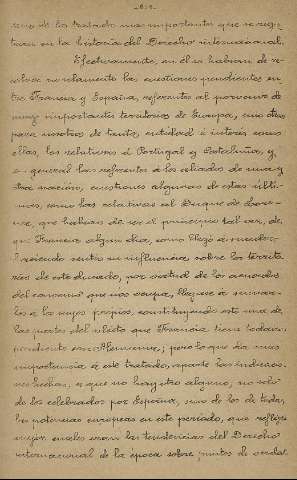 uno de los tratados mas importantes que se regis-
tran en la historia del Derecho internacional.
Efectivamente, en él se habian de re-
solver no solamente las cuestiones pendientes en-
tre Francia y España, referentes al porvenir de
muy importantes territorios de Europa, sino otras
para nosotros de tanta entidad é interés como
ellas, las relativas á Portugal y Cataluña, y,
en general las referentes á los aliados de una y
otra nacion, cuestiones algunas de estas últi-
mas, como las relativas al Duque de Lore-
na, que habian de ser el principio tal vez, de
que Francia algun dia, como llegó á suceder
ejerciendo su influencia sobre los territo-
rios de este ducado, por virtud de los acuerdos
del convenio que nos ocupa, llegase á sumar-
los á los suyos propios, constituyendo este una de
las partes del pleito que Francia tiene todavia
pendiente con Alemania; pero lo que da mas
importancia á este tratado, aparte las indicacio-
nes hechas, es que no hay otro alguno, no solo
de los celebrados por España, sino de los de todas
las potencias europeas en este periodo, que refleje
mejor cuales eran las tendencias del Derecho
internacional de la época sobre puntos de verdad